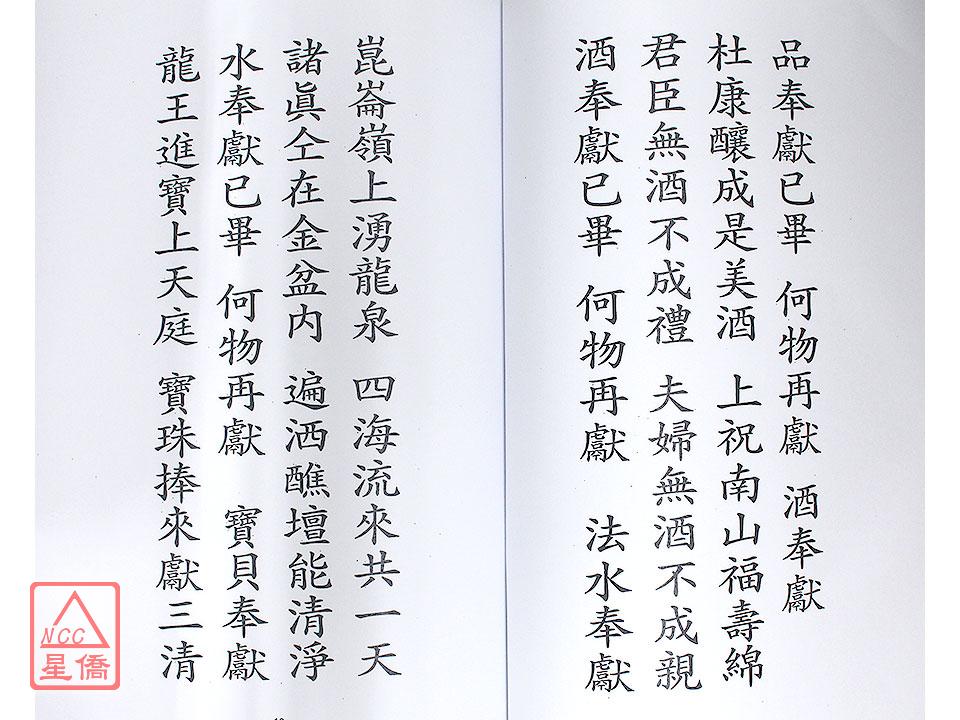 品奉獻已畢 何物再獻 酒奉獻
杜康釀成是美酒 上祝南山福壽綿
君臣無酒不成禮 夫婦無酒不成親
酒奉獻已畢 何物再獻 法水奉獻
崑崙嶺上湧龍泉 四海流來共一天
諸眞仝在金盆內 遍洒醮壇能清淨
水奉獻已畢 何物再獻 寶貝奉獻
龍王進寶上天庭 寶珠捧來獻三清
NCC
星僑